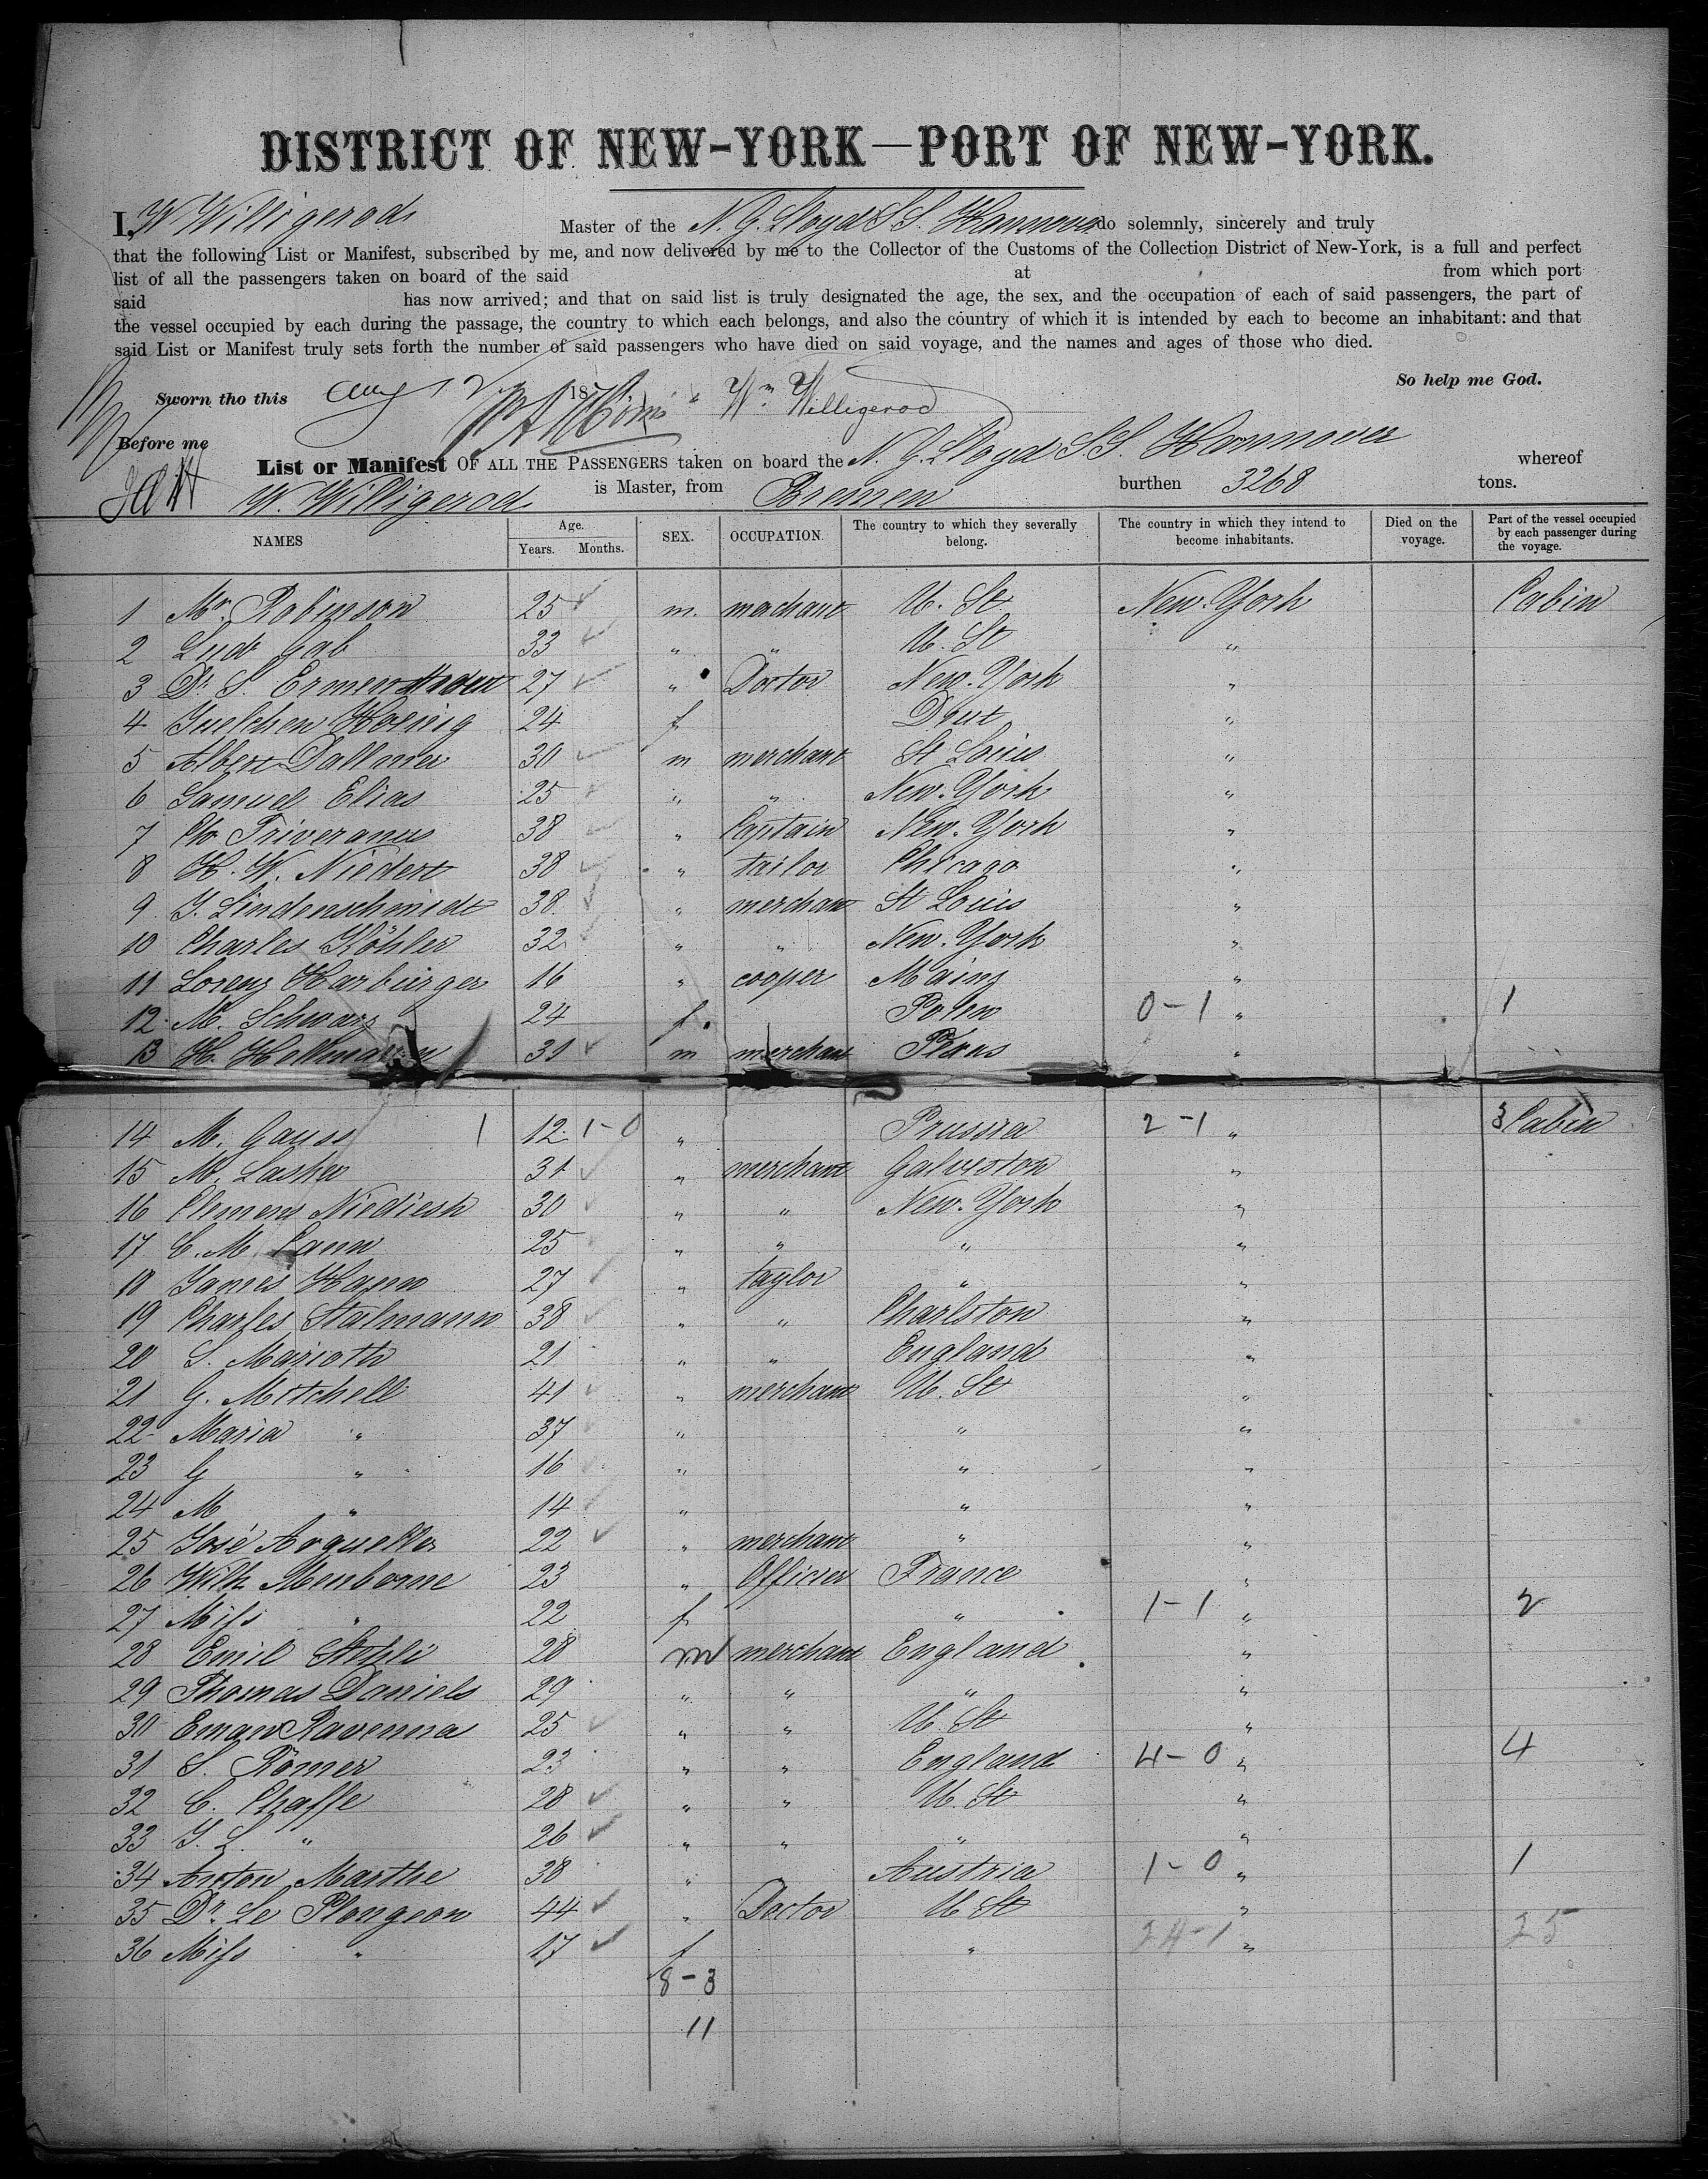 DISTRICT OF NEW-YORK—PORT OF NEW-YORK.
I, W Willigerod Master of the N. G. Lloyd S S. Hannover do solemnly, sincerely and truly
that the following List or Manifest, subscribed by me, and now delivered by me to the Collector of the Customs of the Collection District of New-York, is a full and perfect
list of all the passengers taken on board of the said at from which port
said has now arrived; and that on said list is truly designated the age, the sex, and the occupation of each of said passengers, the part of
the vessel occupied by each during the passage, the country to which each belongs, and also the country of which it is intended by each to become an inhabitant: and that
said List or Manifest truly sets forth the number of said passengers who have died on said voyage, and the names and ages of those who died.
So help me God.
Sworn tho this Aug 12 187 Wm Willigerod
Before me
List or Manifest OF ALL THE PASSENGERS taken on board the N. G. Lloyd S S. Hannover whereof
W. Willigerod is Master, from Bremen burthen 3268 tons.
NAMES Age. Years. Months. SEX. OCCUPATION. The country to which they severally belong. The country in which they intend to become inhabitants. Died on the voyage. Part of the vessel occupied by each passenger during the voyage.
1 Mr. Robinson 25 m. merchant U. St New-York Cabin
2 Ludv Gab 33 " " U. St "
3 Dr S. 27 " Doctor New-York "
4 Julchen Hoenig 24 f Deut "
5 Albert Dallmer 30 m merchant St Louis "
6 Samuel Elias 25 " " New-York "
7 Ch Triveranus 38 " Captain New-York "
8 H. W. Niedert 38 " tailor Chicago "
9 J. Lindenschmidt 38 " merchant St Louis "
10 Charles Köhler 32 " " New-York "
11 Lorenz Harburger 16 " cooper Mainz "
12 M. Schwarz 24 f. Polen 0-1 " 1
13 H. Hellmann 31 m merchant "
14 M. Gauss 1 12 1-0 " Prussia 2-1 " 3 Cabin
15 M. Lasker 31 " merchant Galveston "
16 Clemens Niediesh 30 " " New-York "
17 C. M. 25 " " " "
18 James Hann 27 " taylor " "
19 Charles Stalmann 38 " " Charlston "
20 S. Marioth 21 " " England "
21 G. Mitchell 41 " merchant U. St "
22 Maria " 37 " " "
23 G " 16 " " "
24 M " 14 " " "
25 José Arguelles 22 " merchant " "
26 Wilh Menborne 23 " Officier France "
27 Miss " 22 f " 1-1 " 2
28 Emil Stehli 28 m merchant England "
29 Thomas Daniels 29 " " " "
30 Eman Ravenna 25 " " U. St "
31 S. Römer 23 " " England 4-0 " 4
32 C. Chaffe 28 " " U. St "
33 J. L. " 26 " " " "
34 Anton Marthe 38 " Austria 1-0 " 1
35 Dr. Le Plongeon 44 " Doctor U St "
36 Miss " 17 f " 24-1 " 25
8-3
11